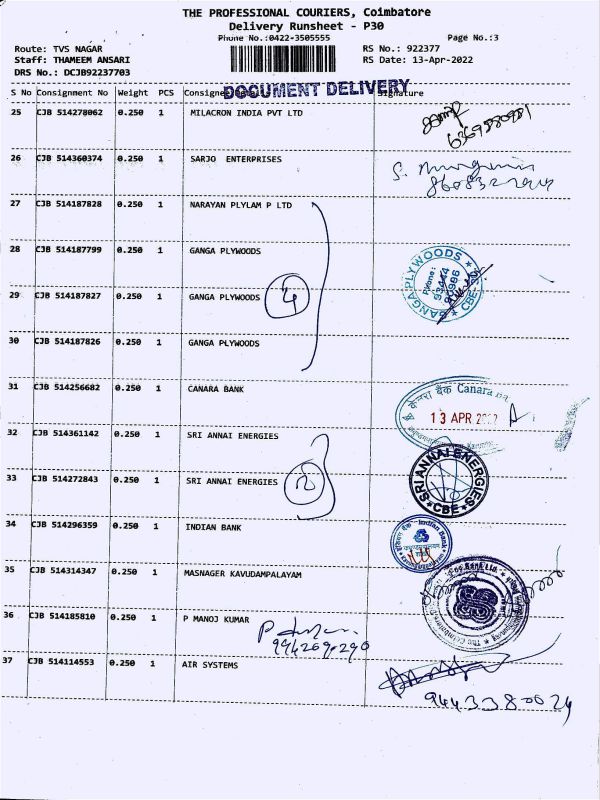 THE PROFESSIONAL COURIERS, Coimbatore
Delivery Runsheet - P30
Phone No.:0422-3505555
Page No.:3
Route: TVS NAGAR
RS No.: 922377
Staff: THAMEEM ANSARI
RS Date: 13-Apr-2022
DRS No.: DCJB92237703
S No Consignment No Weight PCS Consignee Signature
DOCUMENT DELIVERY
25 CJB 514278062 0.250 1 MILACRON INDIA PVT LTD
26 CJB 514360374 0.250 1 SARJO ENTERPRISES
S.
27 CJB 514187828 0.250 1 NARAYAN PLYLAM P LTD
28 CJB 514187799 0.250 1 GANGA PLYWOODS
GANGA PLYWOODS ★ CBE ★
Phone:
93444
90996
29 CJB 514187827 0.250 1 GANGA PLYWOODS
4
30 CJB 514187826 0.250 1 GANGA PLYWOODS
31 CJB 514256682 0.250 1 CANARA BANK
केनरा बैंक Canara
13 APR 2022
32 CJB 514361142 0.250 1 SRI ANNAI ENERGIES
33 CJB 514272843 0.250 1 SRI ANNAI ENERGIES
2
SRI ANNAI ENERGIES ★ CBE ★
34 CJB 514296359 0.250 1 INDIAN BANK
Indian Bank
35 CJB 514314347 0.250 1 MASNAGER KAVUDAMPALAYAM
Bank Ltd.
36 CJB 514185810 0.250 1 P MANOJ KUMAR
37 CJB 514114553 0.250 1 AIR SYSTEMS
9443380024